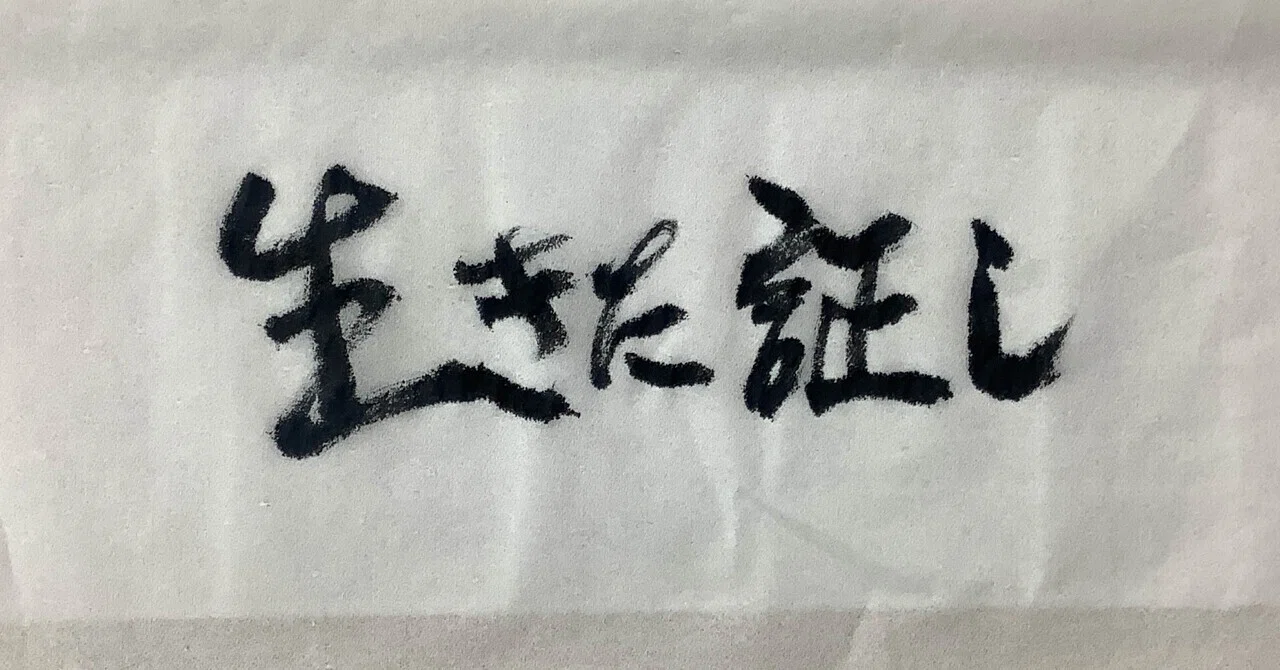 生きた証し